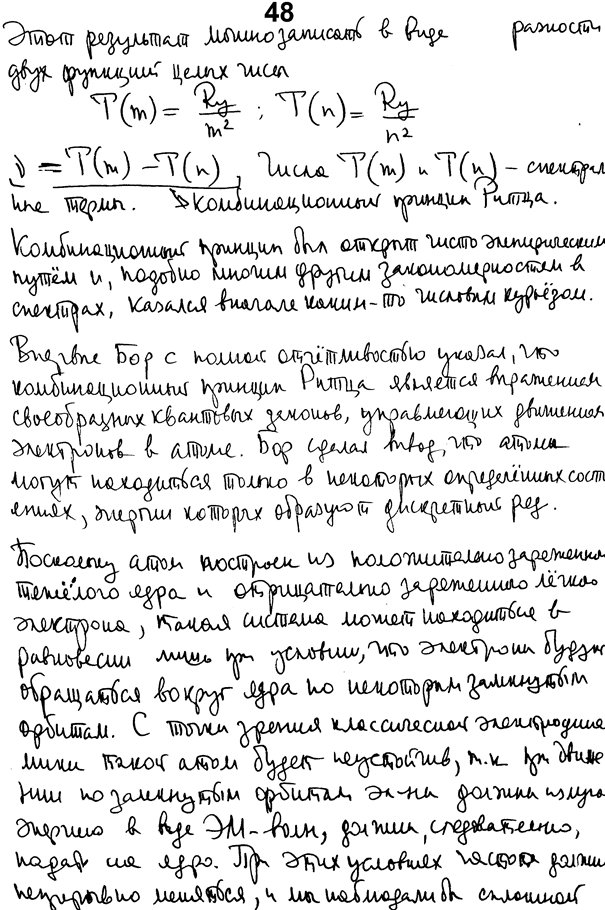 48
Этот результат можно записать в виде разности
двух функций целых чисел
T(m) = Ry/m² ; T(n) = Ry/n²
ν = T(m) − T(n), числа T(m) и T(n) – спектраль
ные термы. Комбинационный принцип Ритца.
Комбинационный принцип был открыт чисто эмпирическим
путём и, подобно многим другим закономерностям в
спектрах, казался вначале каким-то числовым курьёзом.
Впервые Бор с полной отчётливостью указал, что
комбинационный принцип Ритца является выражением
своеобразных квантовых законов, управляющих движением
электронов в атоме. Бор сделал вывод, что атомы
могут находиться только в некоторых определённых сост
ояниях, энергии которых образуют дискретный ряд.
Поскольку атом построен из положительно заряженно
тяжёлого ядра и отрицательно заряженного лёгкого
электрона, такая система может находиться в
равновесии лишь при условии, что электроны будут
обращаться вокруг ядра по некоторым замкнутым
орбитам. С точки зрения классической электродина
мики такой атом будет неустойчив, т.к при движе
нии по замкнутым орбитам эл-ны должны излуча
энергию в виде ЭМ-волн, должны, следовательно,
падать на ядро. При этих условиях частота должна
непрерывно меняться, и мы наблюдали бы сплошной